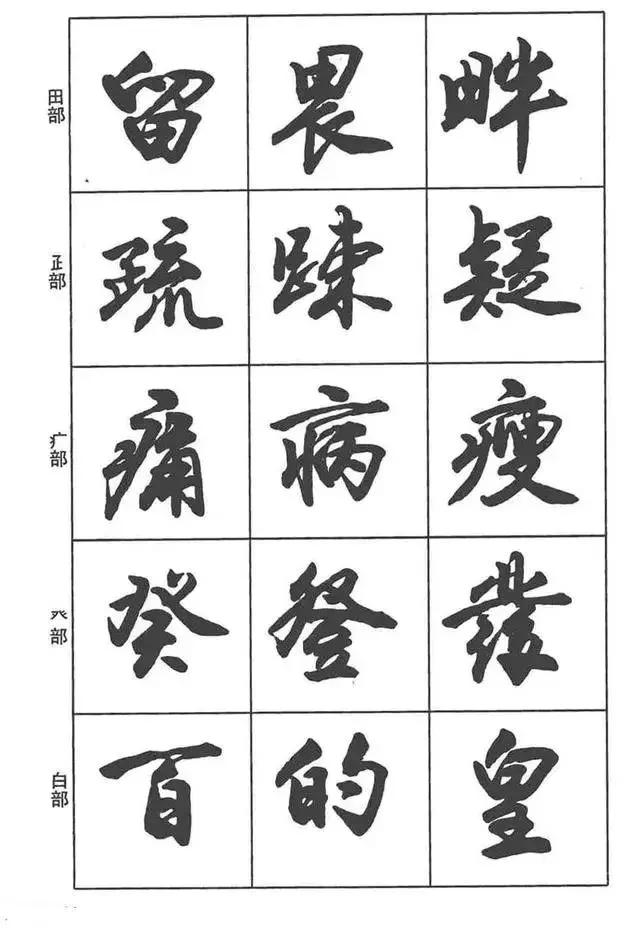 田部 留 畏 畔
𤴔部 疏 踈 疑
疒部 痛 病 瘦
癶部 癸 登 發
白部 百 的 皇